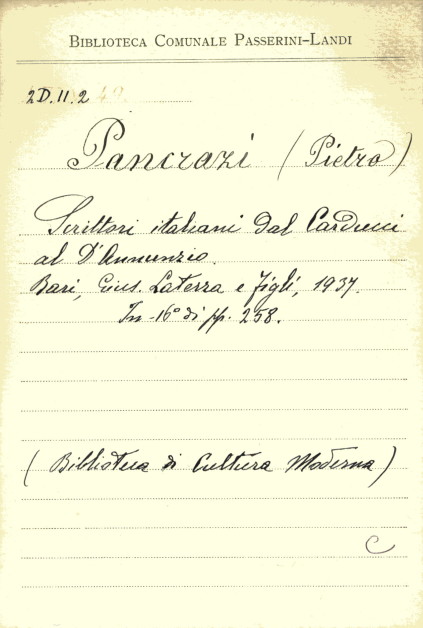 BIBLIOTECA COMUNALE PASSERINI-LANDI
2D.II.2
Pancrazi (Pietro)
Scrittori italiani dal Carducci
al D'Annunzio.
Bari, Gius. Laterza e figli, 1937.
In-16° di pp. 258.
(Biblioteca di Cultura Moderna)
C